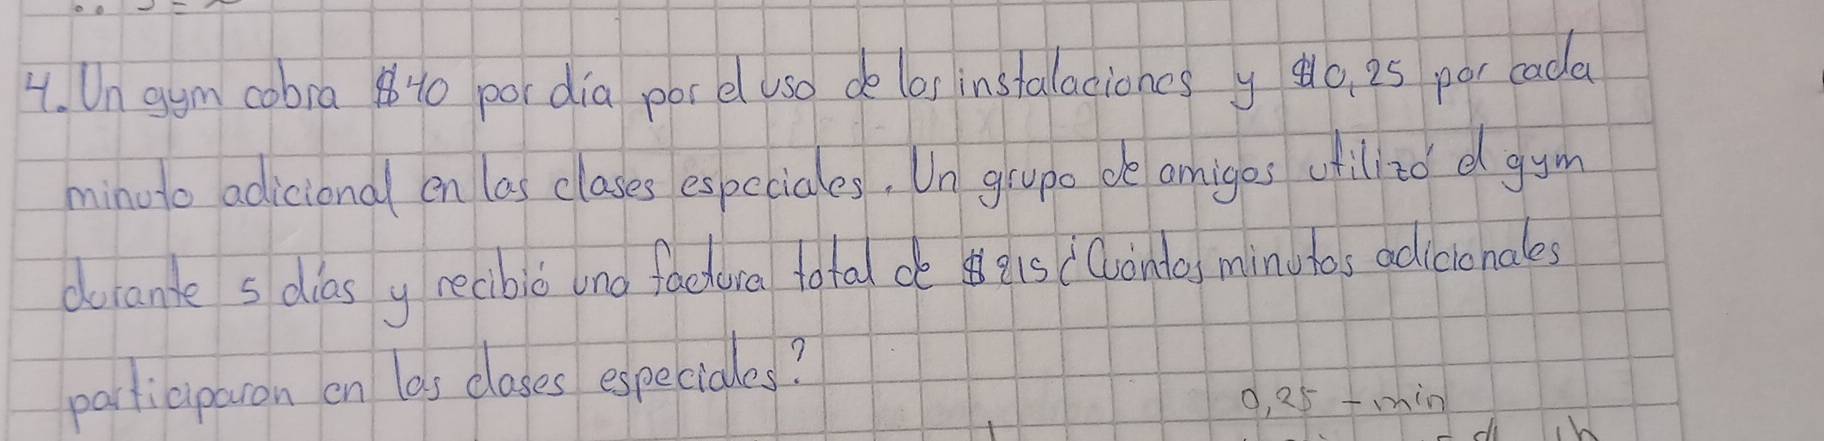 4. Un gym cobra $40 por día por el uso de las instalaciones y $0,25 por cada
minuto adicional en las clases especiales. Un grupo de amigos utilizó el gym
durante 5 días y recibió una factura total de $215 ¿Cuántos minutos adicionales
participaron en las clases especiales?
0,25 - min